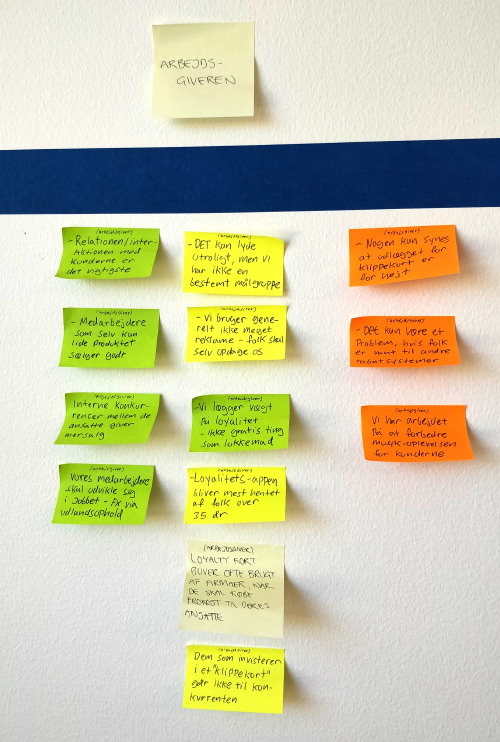 ARBEJDS-
GIVEREN
(arbejdsgiver)
- Relationen/inter-
Aktionen med
kunderne er
det vigtigste
(arbejdsgiver)
- Medarbejdere
som selv kan
lide produktet
sælger godt
(arbejdsgiver)
Interne konkur-
rencer mellem de
ansatte giver
mersalg
(arbejdsgiver)
Vores medarbejdere
skal udvikle sig
i jobbet - fx via
udlandsophold
(arbejdsgiver)
- DET kan lyde
utroligt, men vi
har ikke en
bestemt målgruppe
(arbejdsgiver)
- Vi bruger gene-
relt ikke meget
reklame - folk skal
selv opdage os
(arbejdsgiver)
- Vi lægger vægt
på loyalitet
- ikke gratis ting
som lokkemad
(arbejdsgiver)
- Loyalitets-appen
bliver mest hentet
af folk over
35 år
(ARBEJDSGIVER)
LOYALTY KORT
BLIVER OFTE BRUGT
AF FIRMAER, NÅR
DE SKAL KØBE
PRODUKT TIL DERES
ANSATTE
(arbejdsgiver)
Dem som investerer
i et "klippekort"
går ikke til kon-
kurrenten
(arbejdsgiver)
- Nogen kan synes
at udlægget for
klippekort er
for højt
(arbejdsgiver)
- DET kan være et
Problem, hvis folk
er vant til andre
rabatsystemer
(arbejdsgiver)
Vi har arbejdet
på at forbedre
musik-oplevelsen
for kunderne